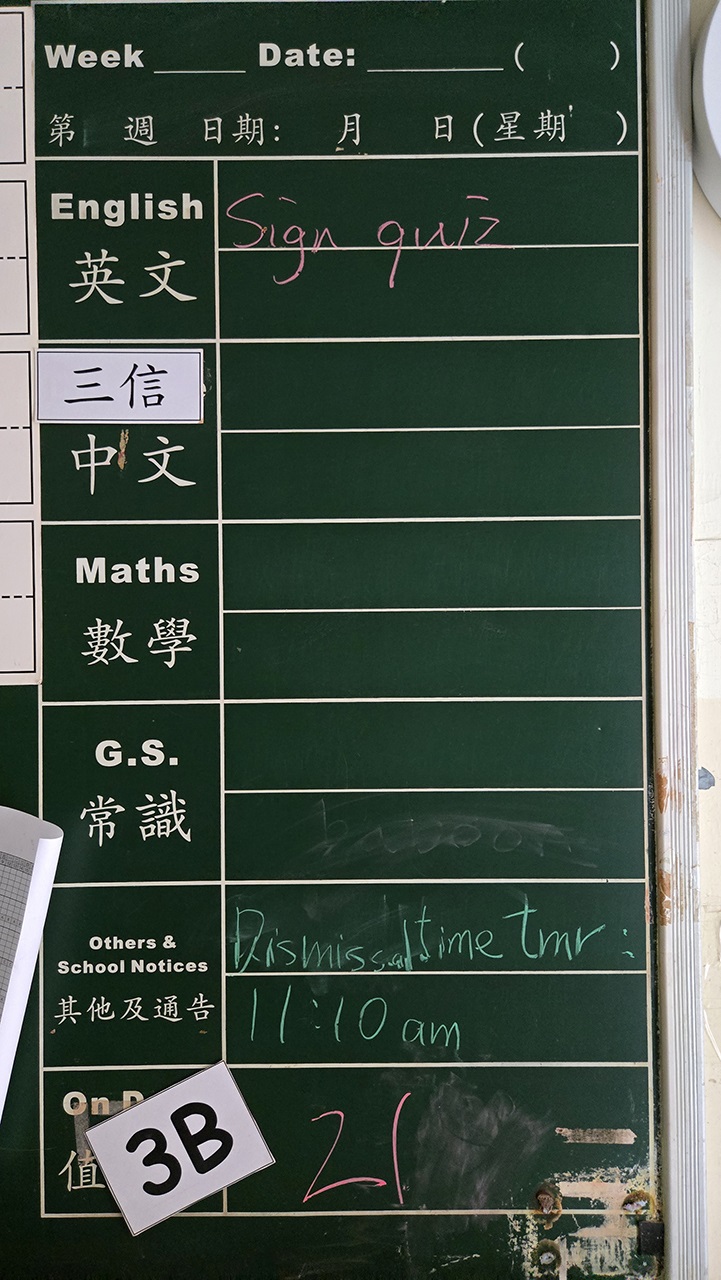 Week _____ Date: ________ ( )
第 週 日期: 月 日(星期 )
English
英文
Sign quiz
三信
中文
Maths
數學
G.S.
常識
baboon
Others &
School Notices
其他及通告
Dismissal time tmr:
11:10 am
On
值
3B
21